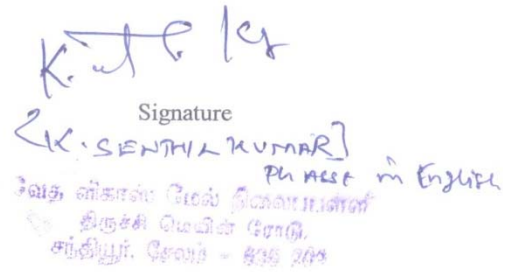 Signature
[K. SENTHIL KUMAR]
PhRASE in English
வேத விகாஸ் மேல் நிலைப்பள்ளி
திருச்சி மெயின் ரோடு,
சந்தியூர், சேலம் - 636 204